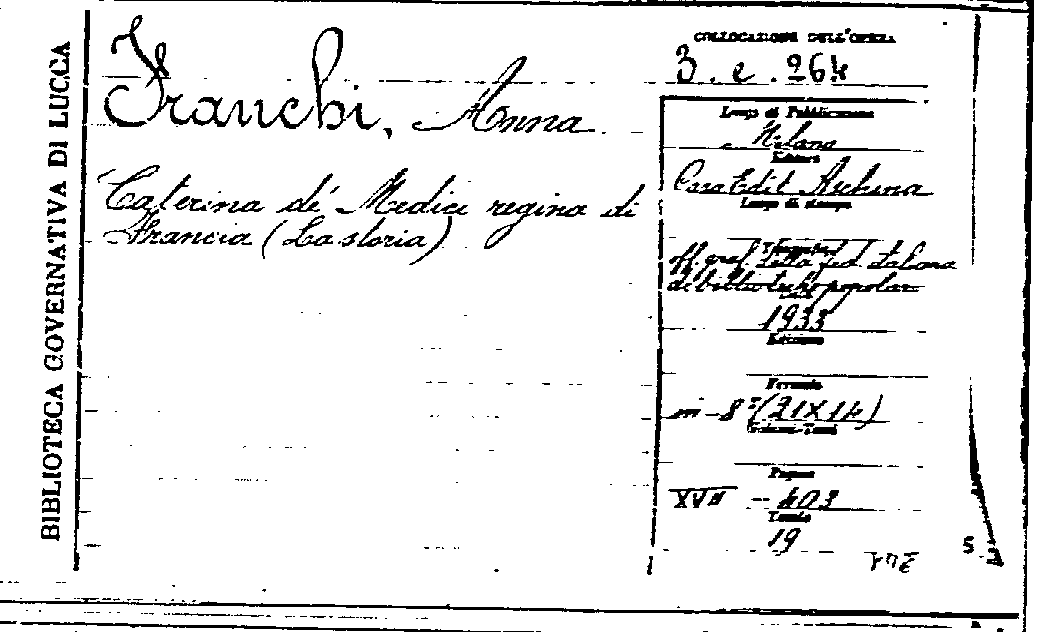 BIBLIOTECA GOVERNATIVA DI LUCCA
Franchi, Anna
Caterina dé Medici regina di
Francia (La storia)
COLLOCAZIONE DELL'OPERA
3. e. 264
Luogo di Pubblicazione
Milano
Editore
Casa Edit
Luogo di stampa
Tipografia
della fed. Italiana
di biblioteche popolari
Data
1933
Edizione
Formato
in-8° (21X14)
Volumi-Tomi
Pagine
XVII - 403
Tavole
19
S.